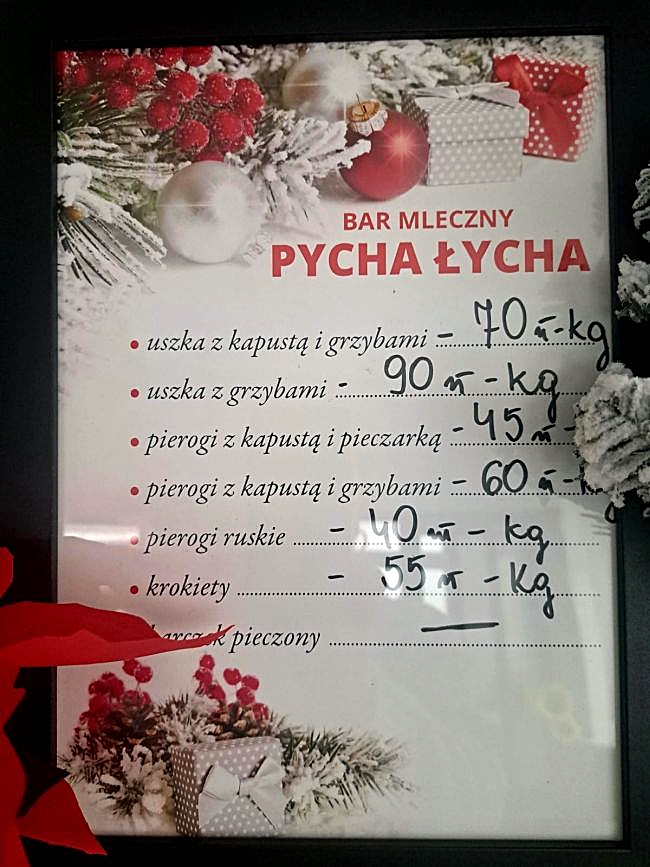 BAR MLECZNY
PYCHA ŁYCHA
• uszka z kapustą i grzybami - 70 zł-kg
• uszka z grzybami - 90 zł - kg
• pierogi z kapustą i pieczarką - 45 zł -
• pierogi z kapustą i grzybami - 60 zł - kg
• pierogi ruskie - 40 zł - kg
• krokiety - 55 zł - kg
karczek pieczony —